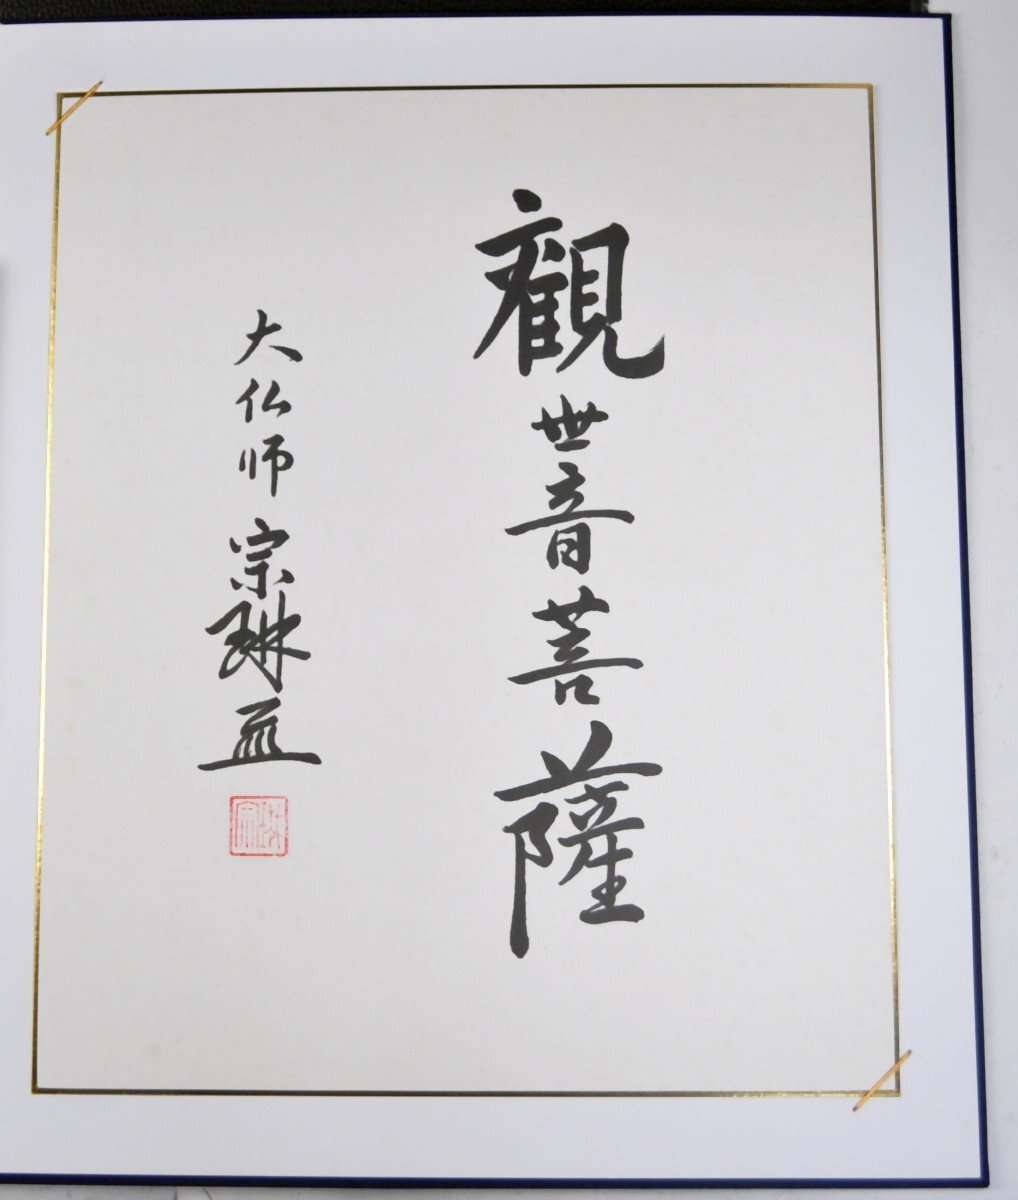 觀世音菩薩
大仏師 宗琳